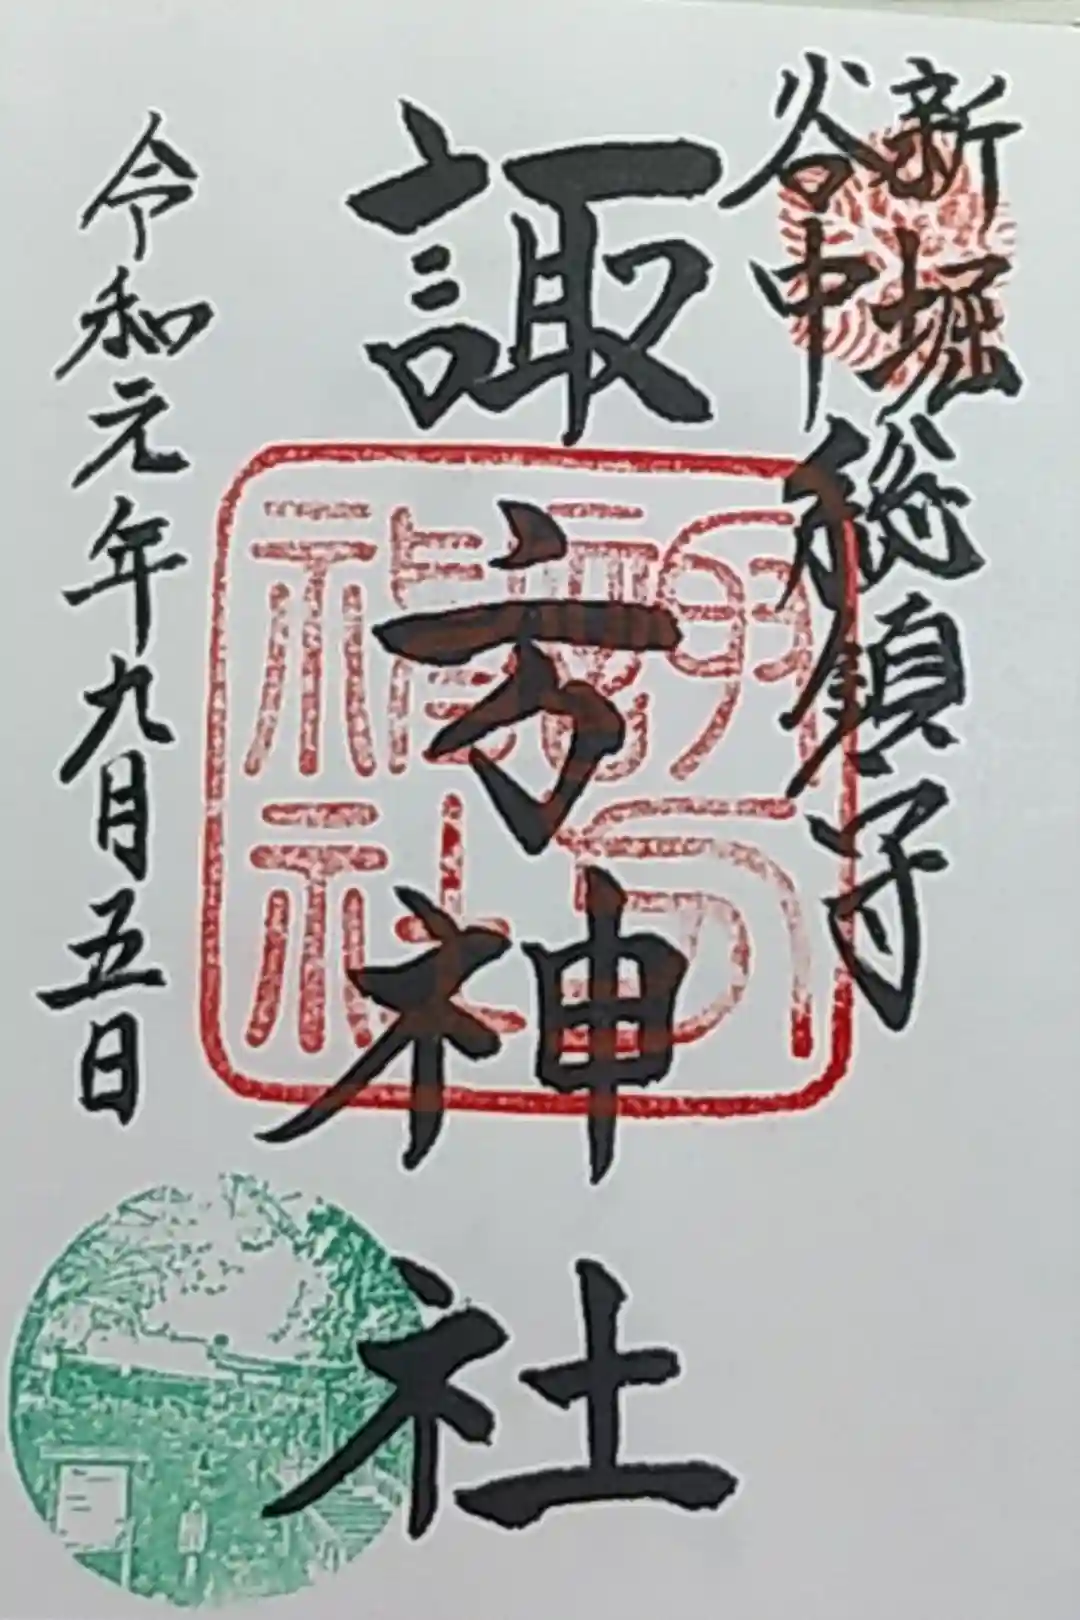 新堀
谷中
総鎮守
諏方神社
令和元年九月五日
諏方神社